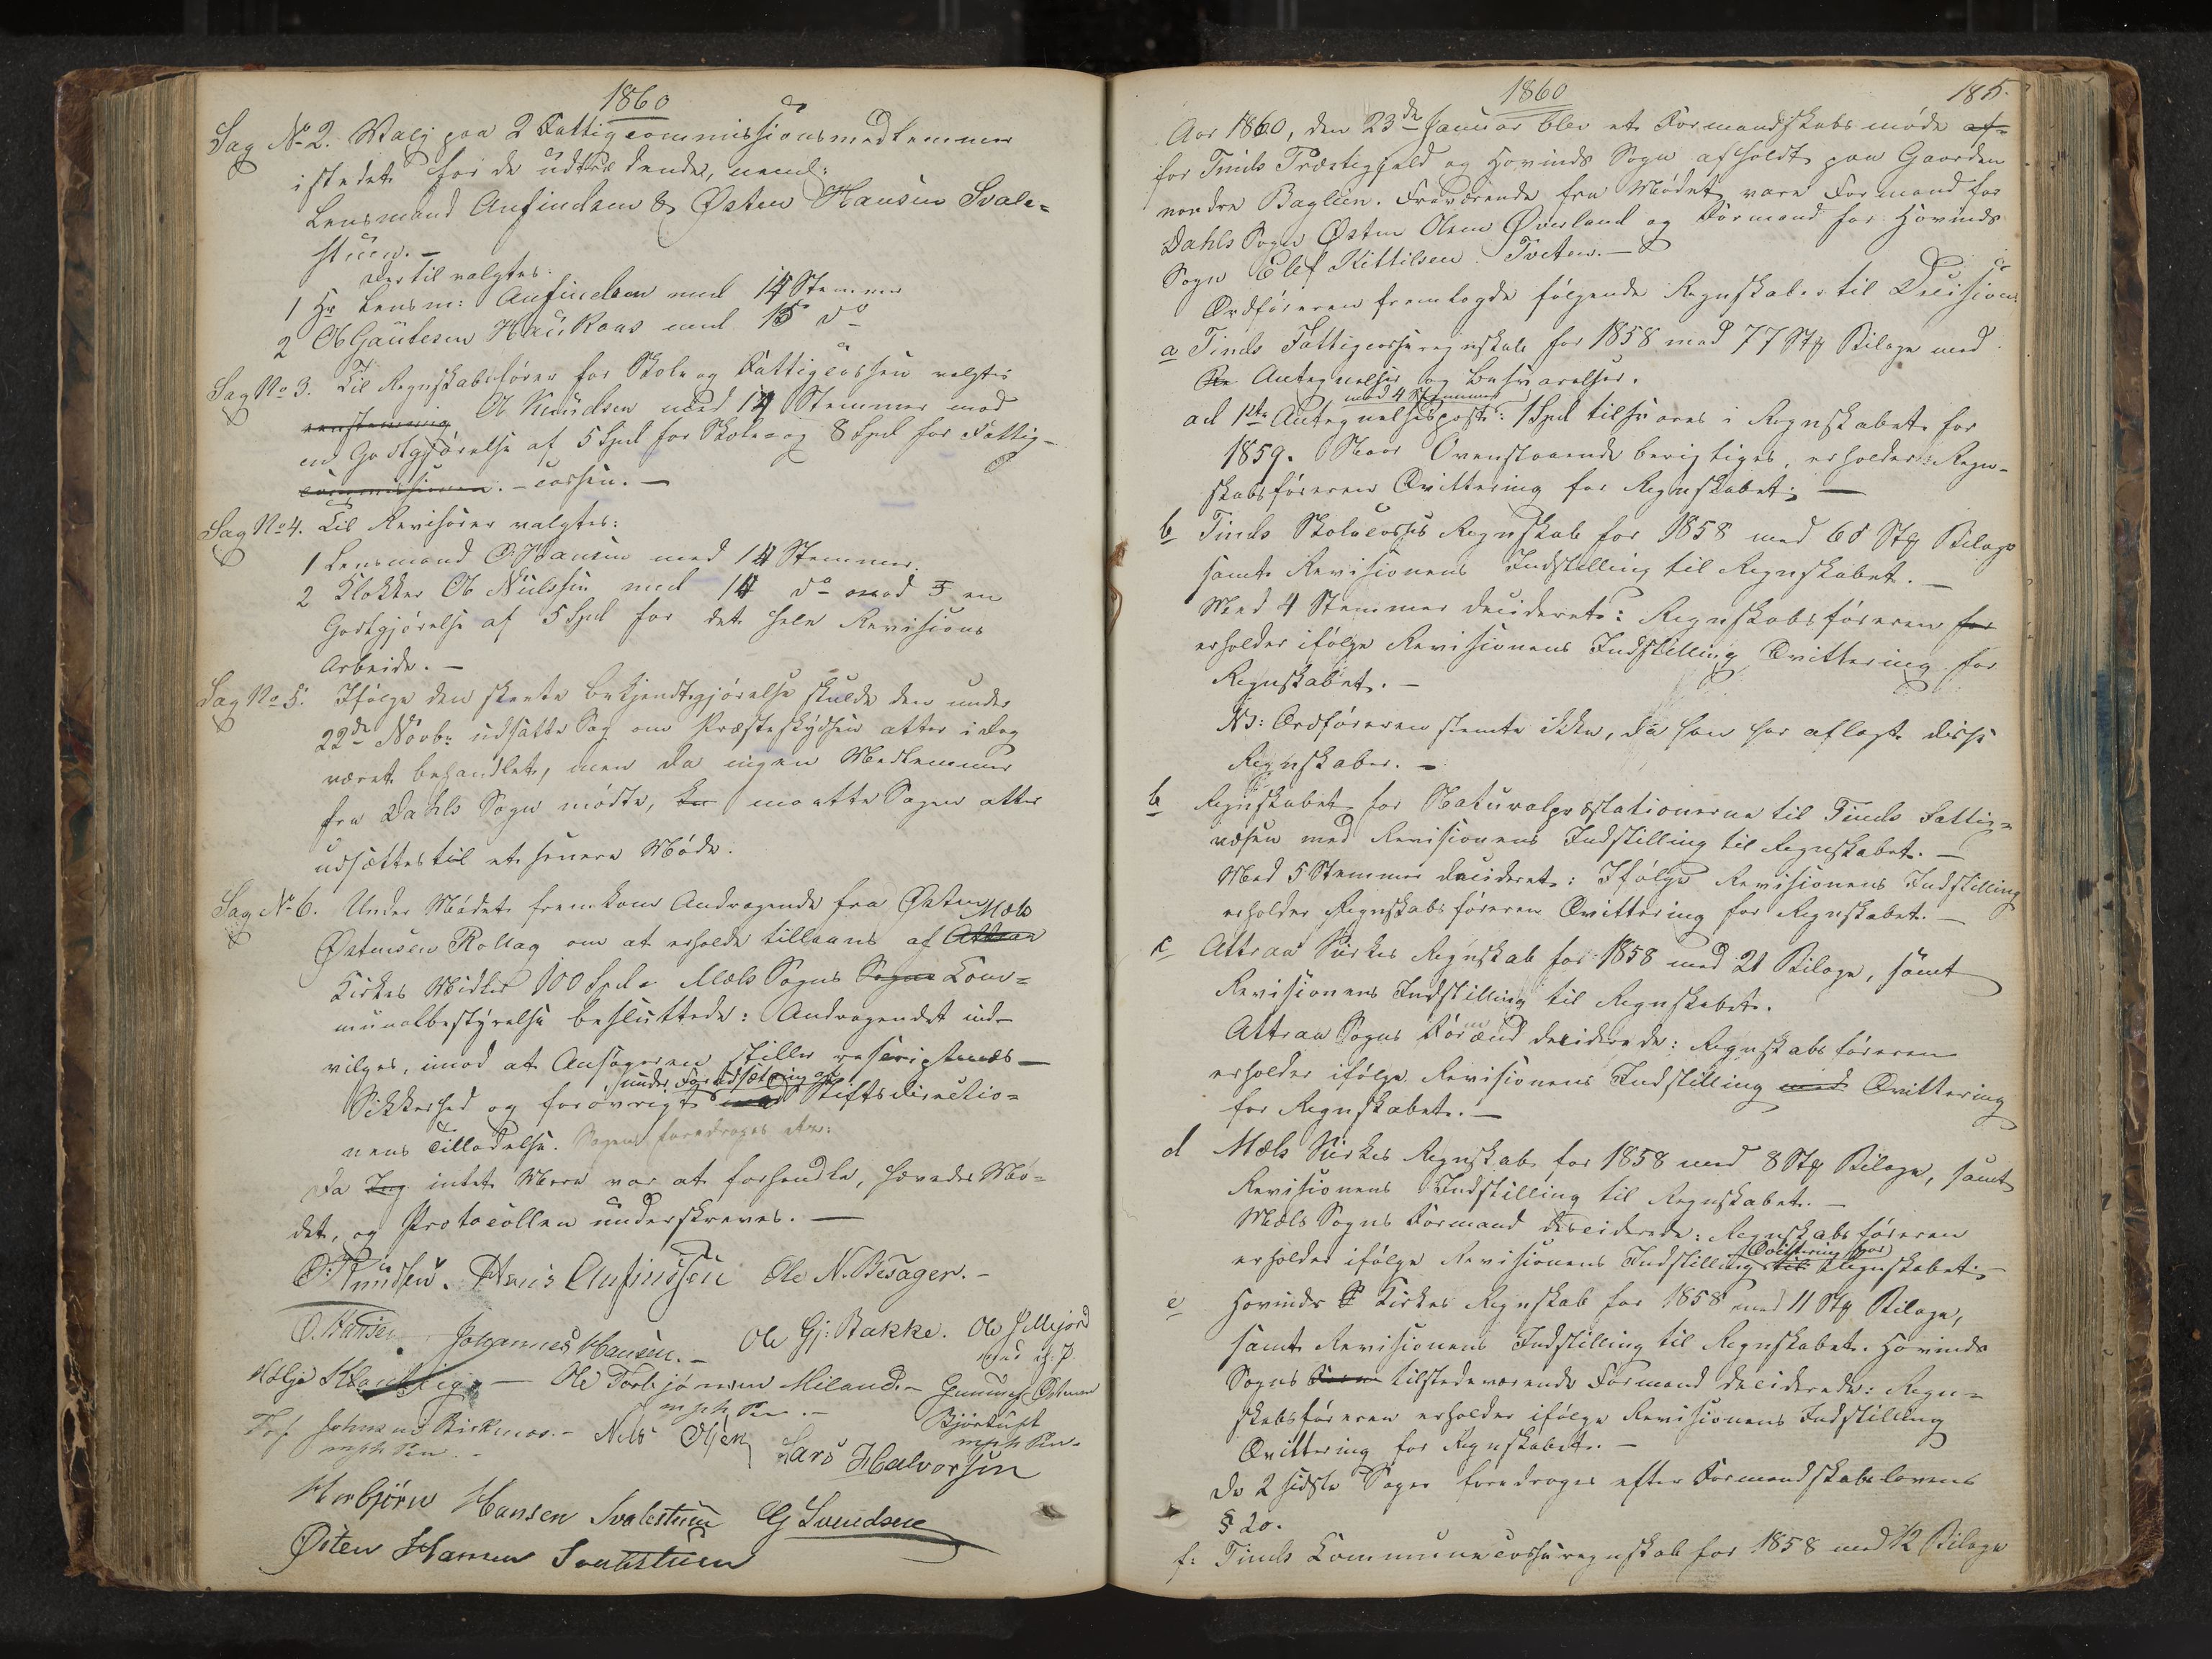 1860
Sag No 2. Valg paa 2 Fattigcommissionsmedlemmer
istedet for de udtrædende, neml:
Lensmand Anfindsen & Østen Hansen Svale=
stuen. –
Dertil valgtes:
1 Hr Lensm: Anfindsen med 14 Stemmer
2 Ol Gautesen Haukaas med 15 do
Sag No 3. Til Regnskabsfører for Skole og Fattigcassen valgtes
eenstemmig Ol Knudsen med 14 Stemmer mod
en Godtgjørelse af 5 Spd for Skole= og 8 Spd for Fattig-
commissionen. – cassen. –
Sag No 4. Til Revisorer valgtes:
1 Lensmand O. Hansen med 14 Stemmer.
2 Klokker Ol Nielssen med 14 do mod 5 en
Godtgjørelse af 5 Spd for det hele Revisions
Arbeide. –
Sag No 5. Ifølge den skeete Bekjendtgjørelse skulde den under
22de Novbr udsatte Sag om Præsteskydsen atter idag
været behandlet, men da ingen Medlemmer
fra Dahls Sogn mødte, maatte Sagen atter
udsættes til et senere Møde.
Sag No 6. Under Mødet fremkom Andragende fra Østen
Mæls
Østensen Rollag om at erholde tillaans af Attraa
Kirkes Midler 100 Spd. Mæls Sogns Sogns Com=
munalbestyrelse besluttede: Andragendet ind-
vilges, imod at Ansøgeren stiller rescriptmæs–
under Forudsætning af
Sikkerhed og forøvrigt med Stiftsdirectio=
nens Tilladelse. Sagen foredrages
Da Ing intet Mere var at forhandle, hævedes Mø=
det, og Protocollen underskreves. –
O. Knudsen. Hans Anfinssen Ole N. Besager. –
O. Hansen. Johannes Hansen. – Ole Gj: Bakke. Ole
Helge – Ole Torbjørnsen Miland. – Gunnuf Østensen
m p h Pen. – Bjørtuft
Johnsen – Nils Olsen m p h Pen.
m p h Pen. – Lars Halvorsen
Herbjørn Hansen Svalestuen G Svendsen
Østen Hansen Svalestuen
1860
185.
Aar 1860, den 23de Januar blev et Formandskabsmøde af-
for Tinds Præstegjeld og Hovinds Sogn afholdt paa Gaarden
nordre Baglien. Fraværende fra Mødet vare Formand for
Dahls Sogn Østen Olsen Øverland og Formand for Hovinds
Sogn Elef Kittilsen Tveten. –
Ordføreren fremlagde følgende Regnskaber til Decision
a Tinds Fattigcasseregnskab for 1858 med 77 Stk Bilage med
Be Antegnelser og Besvarelser.
med 4 Stemmer
ad 1ste Antegnelsespost: 1 Spd tilsvares i Regnskabet for
1859. Naar Ovenstaaende berigtiges, erholder Regn-
skabsføreren Qvittering for Regnskabet. –
b Tinds Skolecasses Regnskab for 1858 med 68 Stk Bilage
samt Revisionens Indstilling til Regnskabet. –
Med 4 Stemmer decideret: Regnskabsføreren for
erholder ifølge Revisionens Indstilling Qvittering for
Regnskabet. –
NB: Ordføreren stemte ikke, da han har aflagt disse
Regnskaber. –
b Regnskabet for Naturalpræstationerne til Tinds Fattig=
væsen med Revisionens Indstilling til Regnskabet. –
Med 5 Stemmer decideret: Ifølge Revisionens Indstilling
erholder Regnskabsføreren Qvittering for Regnskabet. –
c Attraa Kirkes Regnskab for 1858 med 21 Bilage, samt
Revisionens Indstilling til Regnskabet.
Attraa Sogns Formænd deciderede: Regnskabsføreren
erholder ifølge Revisionens Indstilling med Qvittering
for Regnskabet. –
d Mæls Kirkes Regnskab for 1858 med 8 Stk Bilage, samt
Revisionens Indstilling til Regnskabet. –
Mæls Sogns Formand deciderede: Regnskabsføreren
Qvittering for
erholder ifølge Revisionens Indstilling til Regnskabet. –
e Hovinds Kirkes Regnskab for 1858 med 11 Stk Bilage,
samt Revisionens Indstilling til Regnskabet. Hovinds
Sogns Form tilstedeværende Formand deciderede: Regn=
skabsføreren erholder ifølge Revisionens Indstilling
Qvittering for Regnskabet. –
De 2 sidste Sager foredrages efter Formandskabslovens
§ 20.
f: Tinds Communecasseregnskab for 1858 med 12 Bilage